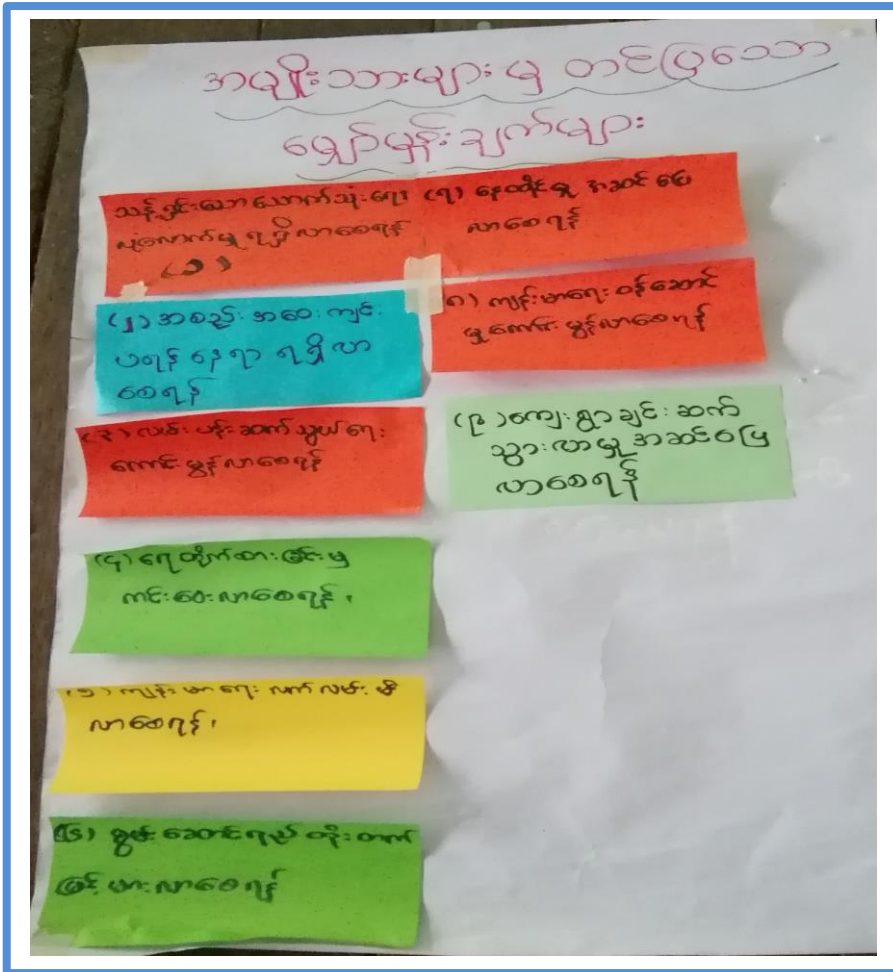 အမျိုးသားများ မှ တင်ပြသော
မျှော်မှန်းချက်များ
သန့်ရှင်းသော သောက်သုံးရေ
လုံလောက်မှု ရရှိလာစေရန်
(၁)
(၂) အစည်းအဝေး ကျင်း
ပရန် နေရာ ရရှိလာ
စေရန်
(၃) လမ်းပန်းဆက်သွယ်ရေး
ကောင်းမွန်လာစေရန်
(၄) ရေတိုက်စားခြင်းမှ
ကင်းဝေးလာစေရန်၊
(၅) ကျန်းမာရေး လက်လမ်းမီ
လာစေရန်၊
(၆) စွမ်းဆောင်ရည် တိုးတက်
မြင့်မားလာစေရန်
(၇) နေထိုင်မှု အဆင်ပြေ
လာစေရန်
(၈) ကျန်းမာရေး ဝန်ဆောင်
မှုကောင်းမွန်လာစေရန်
(၉) ကျေးရွာချင်း ဆက်
သွားလာမှု အဆင်ပြေ
လာစေရန်